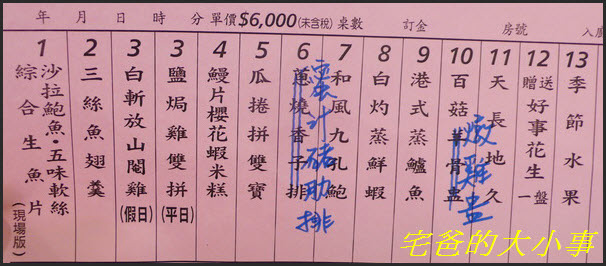 年 月 日 時 分 單價$6,000(未含稅) 桌數 訂金 房號
1 沙拉鮑魚·五味軟絲
綜合生魚片(現場版)
2 三絲魚翅羹
3 白斬放山閹雞(假日)
3 鹽焗雞雙拼(平日)
4 鰻片櫻花蝦米糕
5 瓜捲拼雙寶
6 蔥燒香子排
蜜汁豬肋排
7 和風九孔鮑
8 白灼蒸鮮蝦
9 港式蒸鱸魚
10 百菇羊骨盅
燉雞盅
11 天長地久
12 贈送好事花生一盤
13 季節水果
宅爸的大小事